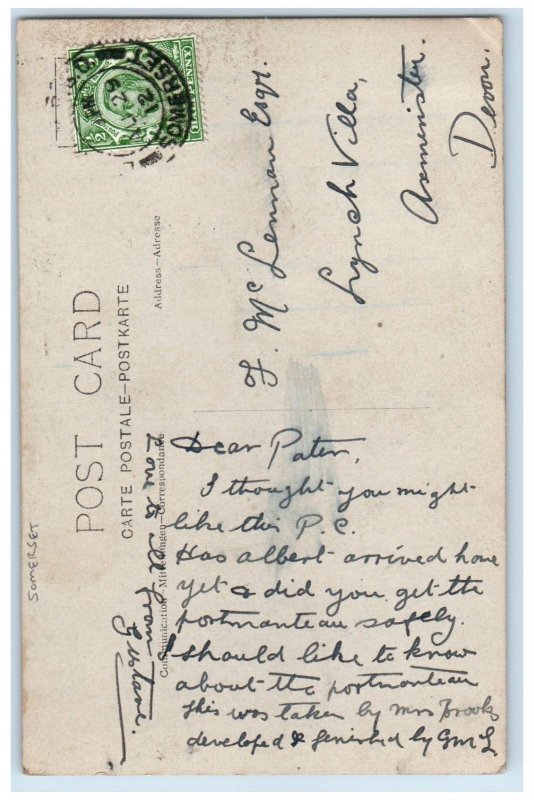 POST CARD
CARTE POSTALE-POSTKARTE
Communication Mitteilungen-Correspondance
Address-Adresse
SOMERSET
SOMERSET
F. McLennan Esqr.
Lynch Villa,
Axminster.
Devon.
Dear Pater,
I thought you might
like this P.C.
Has albert arrived home
yet & did you get the
portmanteau safely.
I should like to know
about the portmanteau
This was taken by Mrs Brooks
developed & finished by GMcL
Love to all from